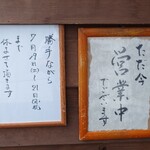 勝手ながら
7月19日(日)〜21日(火)
まで
休ませて頂きます
ただ今
営業中
でございます